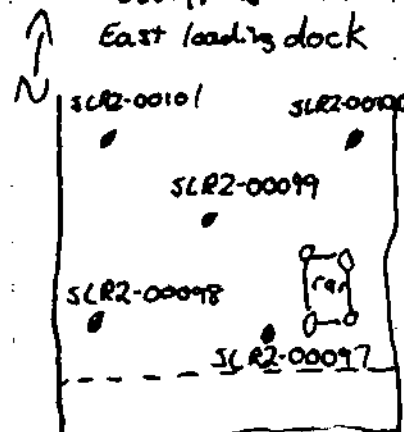 East loading dock
N
SLR2-00101 SLR2-00100
SLR2-00099
car
SLR2-00098
SLR2-00097